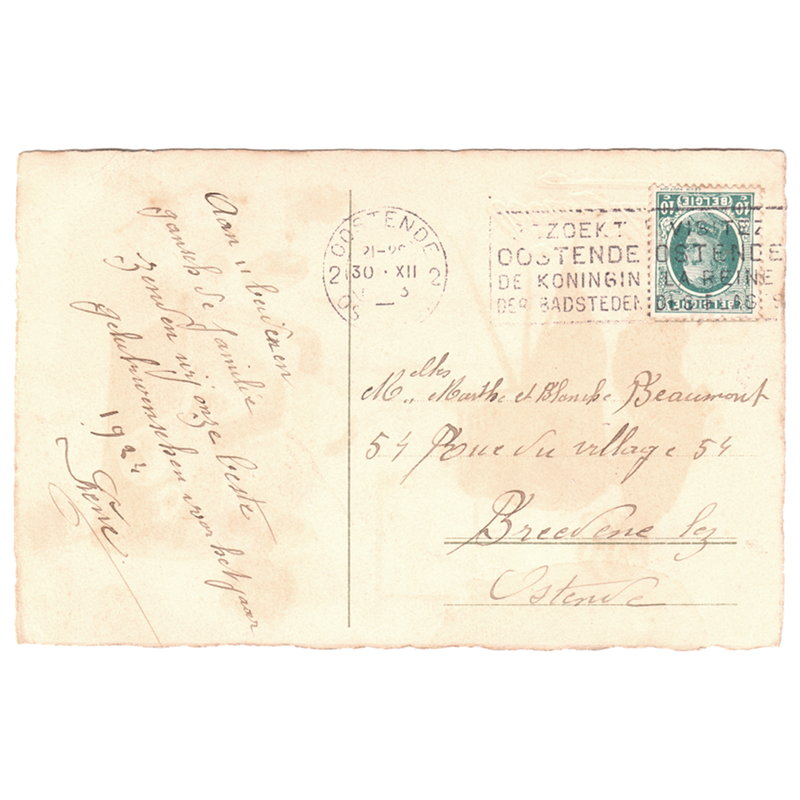 Aan u beiden en
gansch de familie
zenden wij onze beste
gelukwenschen voor het jaar
1924
OOSTENDE
21-2
2 30 · XII 2
BEZOEKT
OOSTENDE
DE KONINGIN
DER BADSTEDEN
VISITEZ
OSTENDE
LA REINE
DES PLAGES
BELGIE
10 10
BELGIQUE
Melles Marthe et Blanche Beaumont
54 Rue du village 54
Breedene lez
Ostende